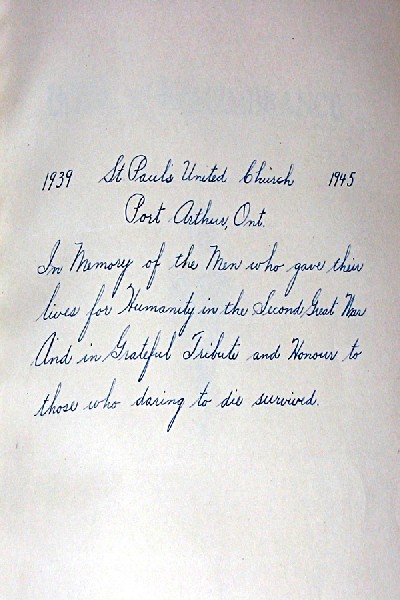 1939 St Paul's United Church 1945
Port Arthur, Ont.
In Memory of the Men who gave their
lives for Humanity in the Second Great War
And in Grateful Tribute and Honour to
those who daring to die survived.